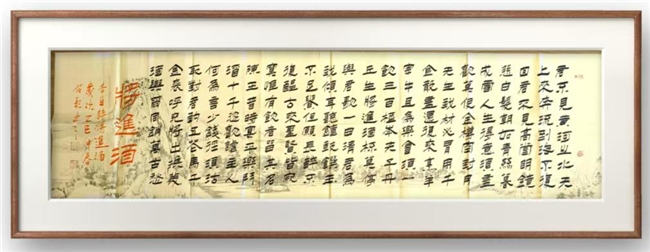 君不見黃河之水天
上來奔流到海不復
回君不見高堂明鏡
悲白髮朝如青絲暮
成雪人生得意須盡
歡莫使金樽空對月
天生我材必有用千
金散盡還復來烹羊
宰牛且為樂會須一
飲三百杯岑夫子丹
丘生將進酒杯莫停
與君歌一曲請君為
我傾耳聽鐘鼓饌玉
不足貴但願長醉不
復醒古來聖賢皆寂
寞惟有飲者留其名
陳王昔時宴平樂斗
酒十千恣歡謔主人
何為言少錢徑須沽
取對君酌五花馬千
金裘呼兒將出換美
酒與爾同銷萬古愁
將進酒
李白詩將進酒
歲次乙巳仲春